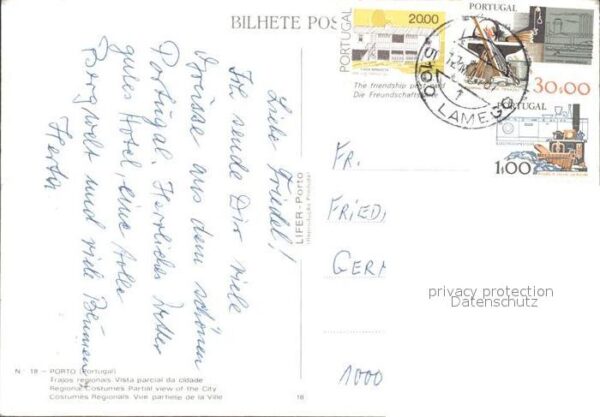 BILHETE POS
Liebe Friedel!
Ich sende Dir viele
Grüsse aus dem schönen
Portugal. Herrliches Wetter
gutes Hotel, eine tolle
Bergwelt und viele Blumen,
Herta
N.° 18 — PORTO (Portugal)
Trajos regionais. Vista parcial da cidade
Regional Costumes. Partial view of the City
Costumes Régionais. Vue partielle de la Ville
18
LIFER-Porto
PORTUGAL
20.00
The friendship post card
Die Freundschafts
PORTUGAL
30.00
PORTUGAL
1.00
5100 LAMEG
1
FR.
FRIED
GERM
1000
privacy protection
Datenschutz